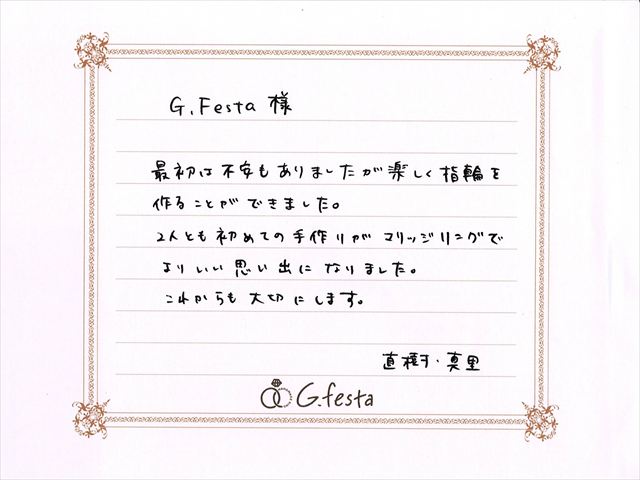 G.Festa 様
最初は不安もありましたが楽しく指輪を
作ることができました。
2人とも初めての手作りがマリッジリングで
よりいい思い出になりました。
これからも大切にします。
直樹・真里
G.festa